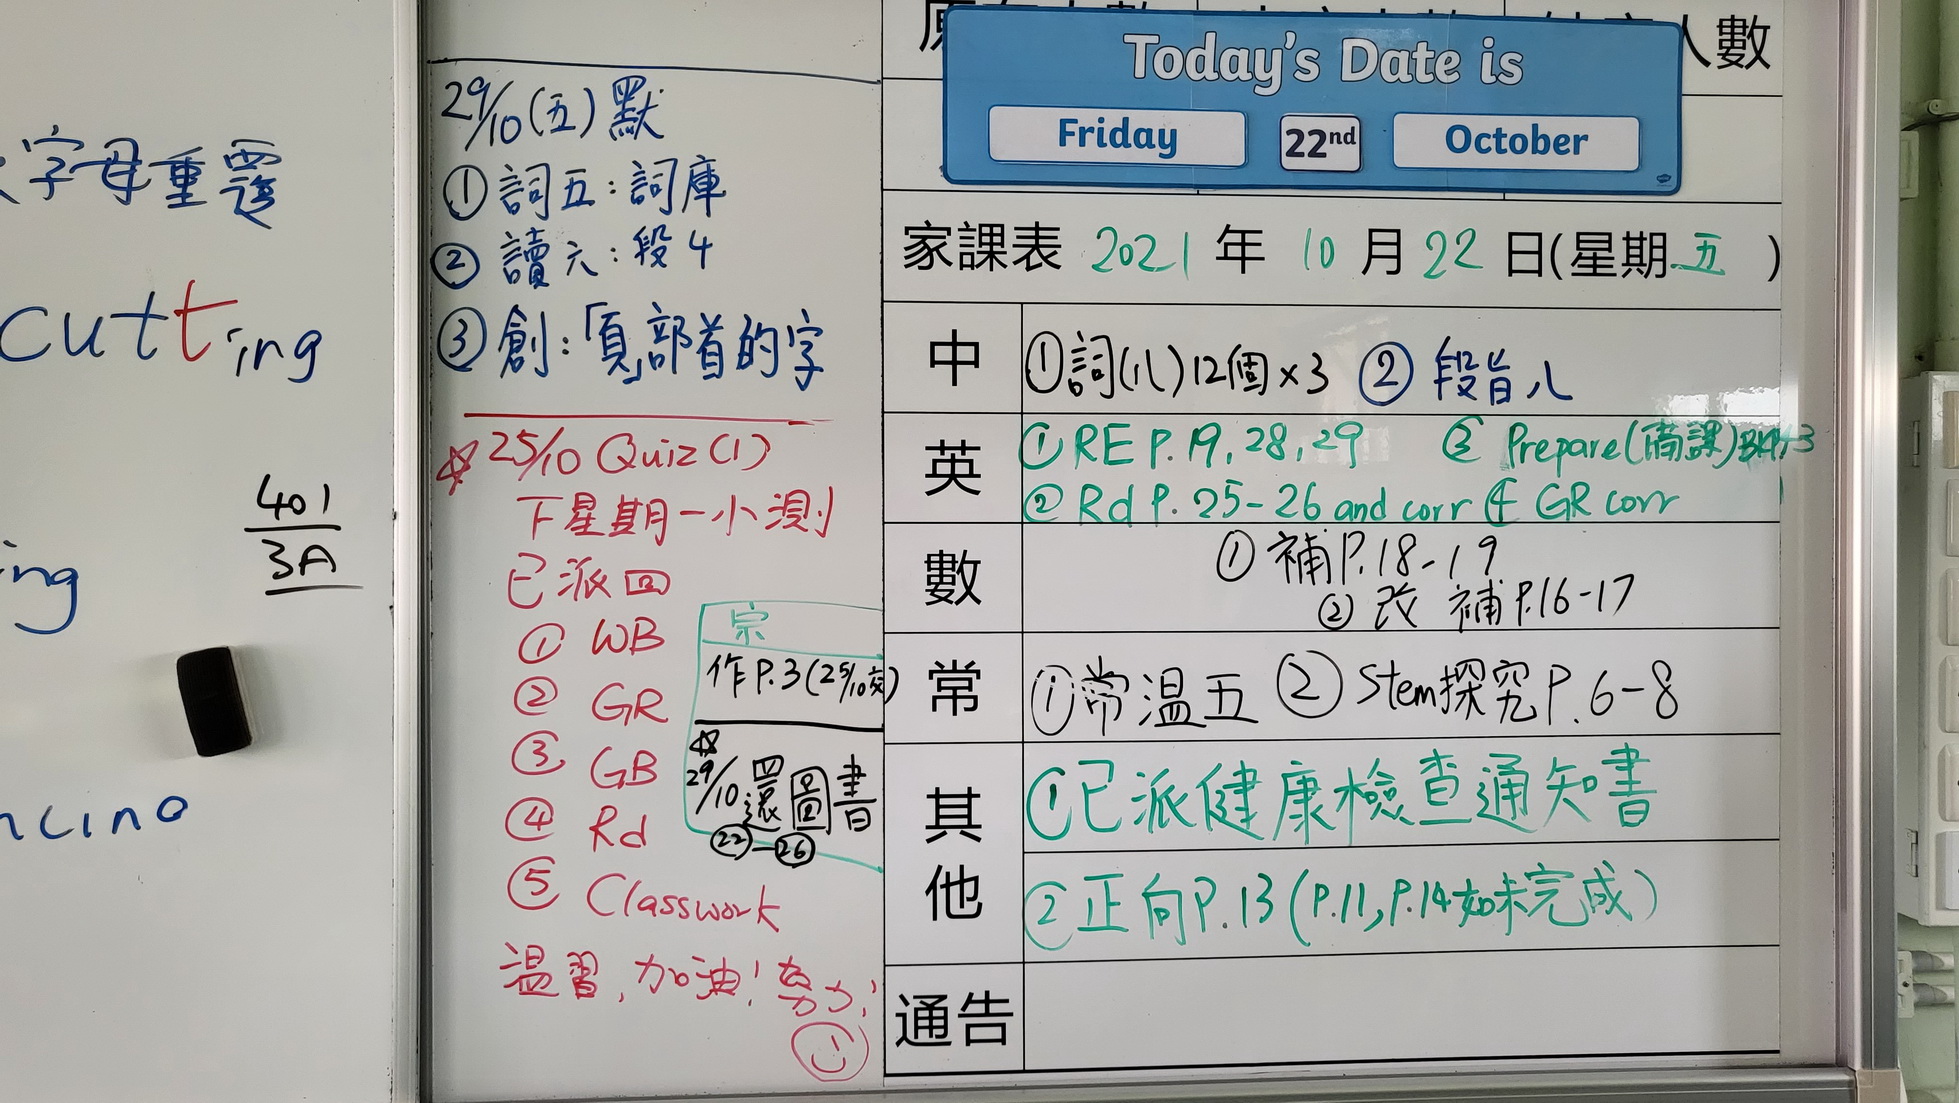 字母重覆
cutting
ing
401
3A
ncing
29/10(五)默
①詞五：詞庫
②讀六：段4
③創：「頁」部首的字
☆25/10 Quiz(1)
下星期一小測
已派回
① WB
② GR
③ GB
④ Rd
⑤ Classwork
温習，加油！努力！
宗
作P.3(25/10交)
☆
29/10 還圖書
㉒—㉖
人數
Today's Date is
Friday 22nd October
家課表 2021 年 10 月 22 日(星期 五 )
中 ①詞(八)12個×3 ②段旨八
英 ①RE P.19, 28, 29 ③ Prepare(備課)
② Rd P. 25-26 and corr ④ GR corr
數 ① 補P.18-19
② 改 補P.16-17
常 ①常温五 ②Stem探究P.6-8
其他 ①已派健康檢查通知書
②正向P.13(P.11, P.14如未完成)
通告